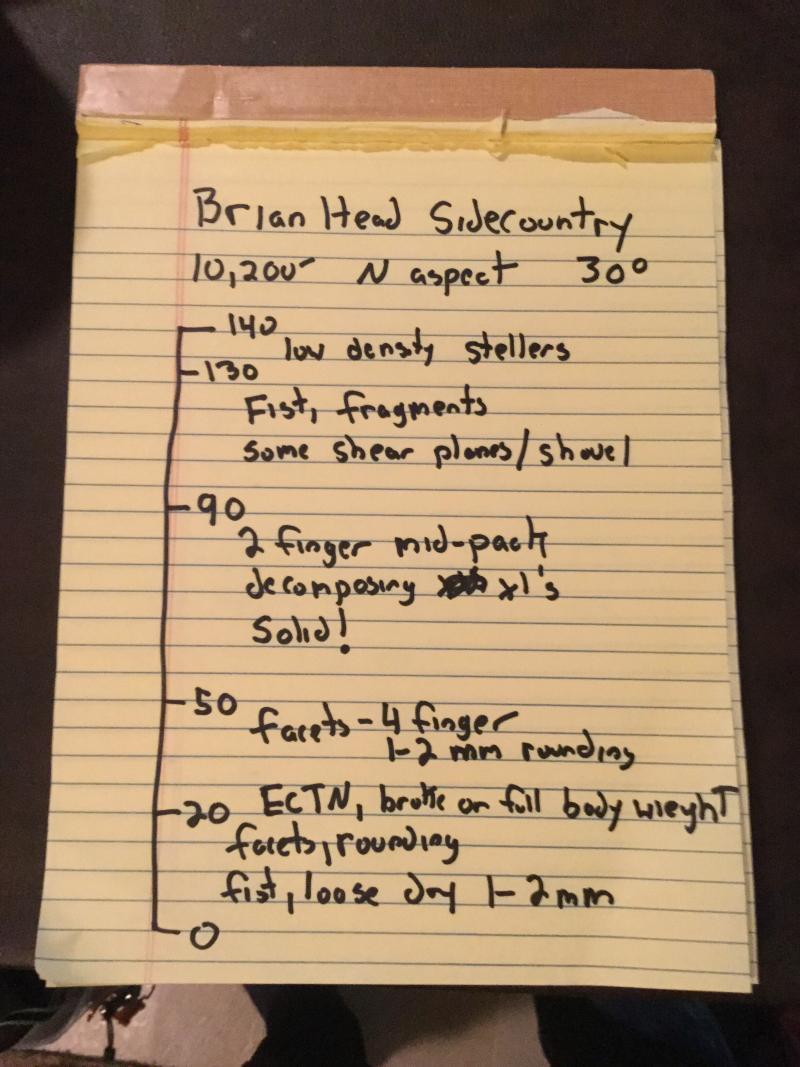 Brian Head Sidecountry
10,200' N aspect 30°
140
low density stellers
130
Fist, fragments
some shear planes/shovel
90
2 finger mid-pack
decomposing xl's
Solid!
50
facets - 4 finger
1-2 mm rounding
20 ECTN, broke on full body wieght
facets, rounding
fist, loose dry 1-2mm
0